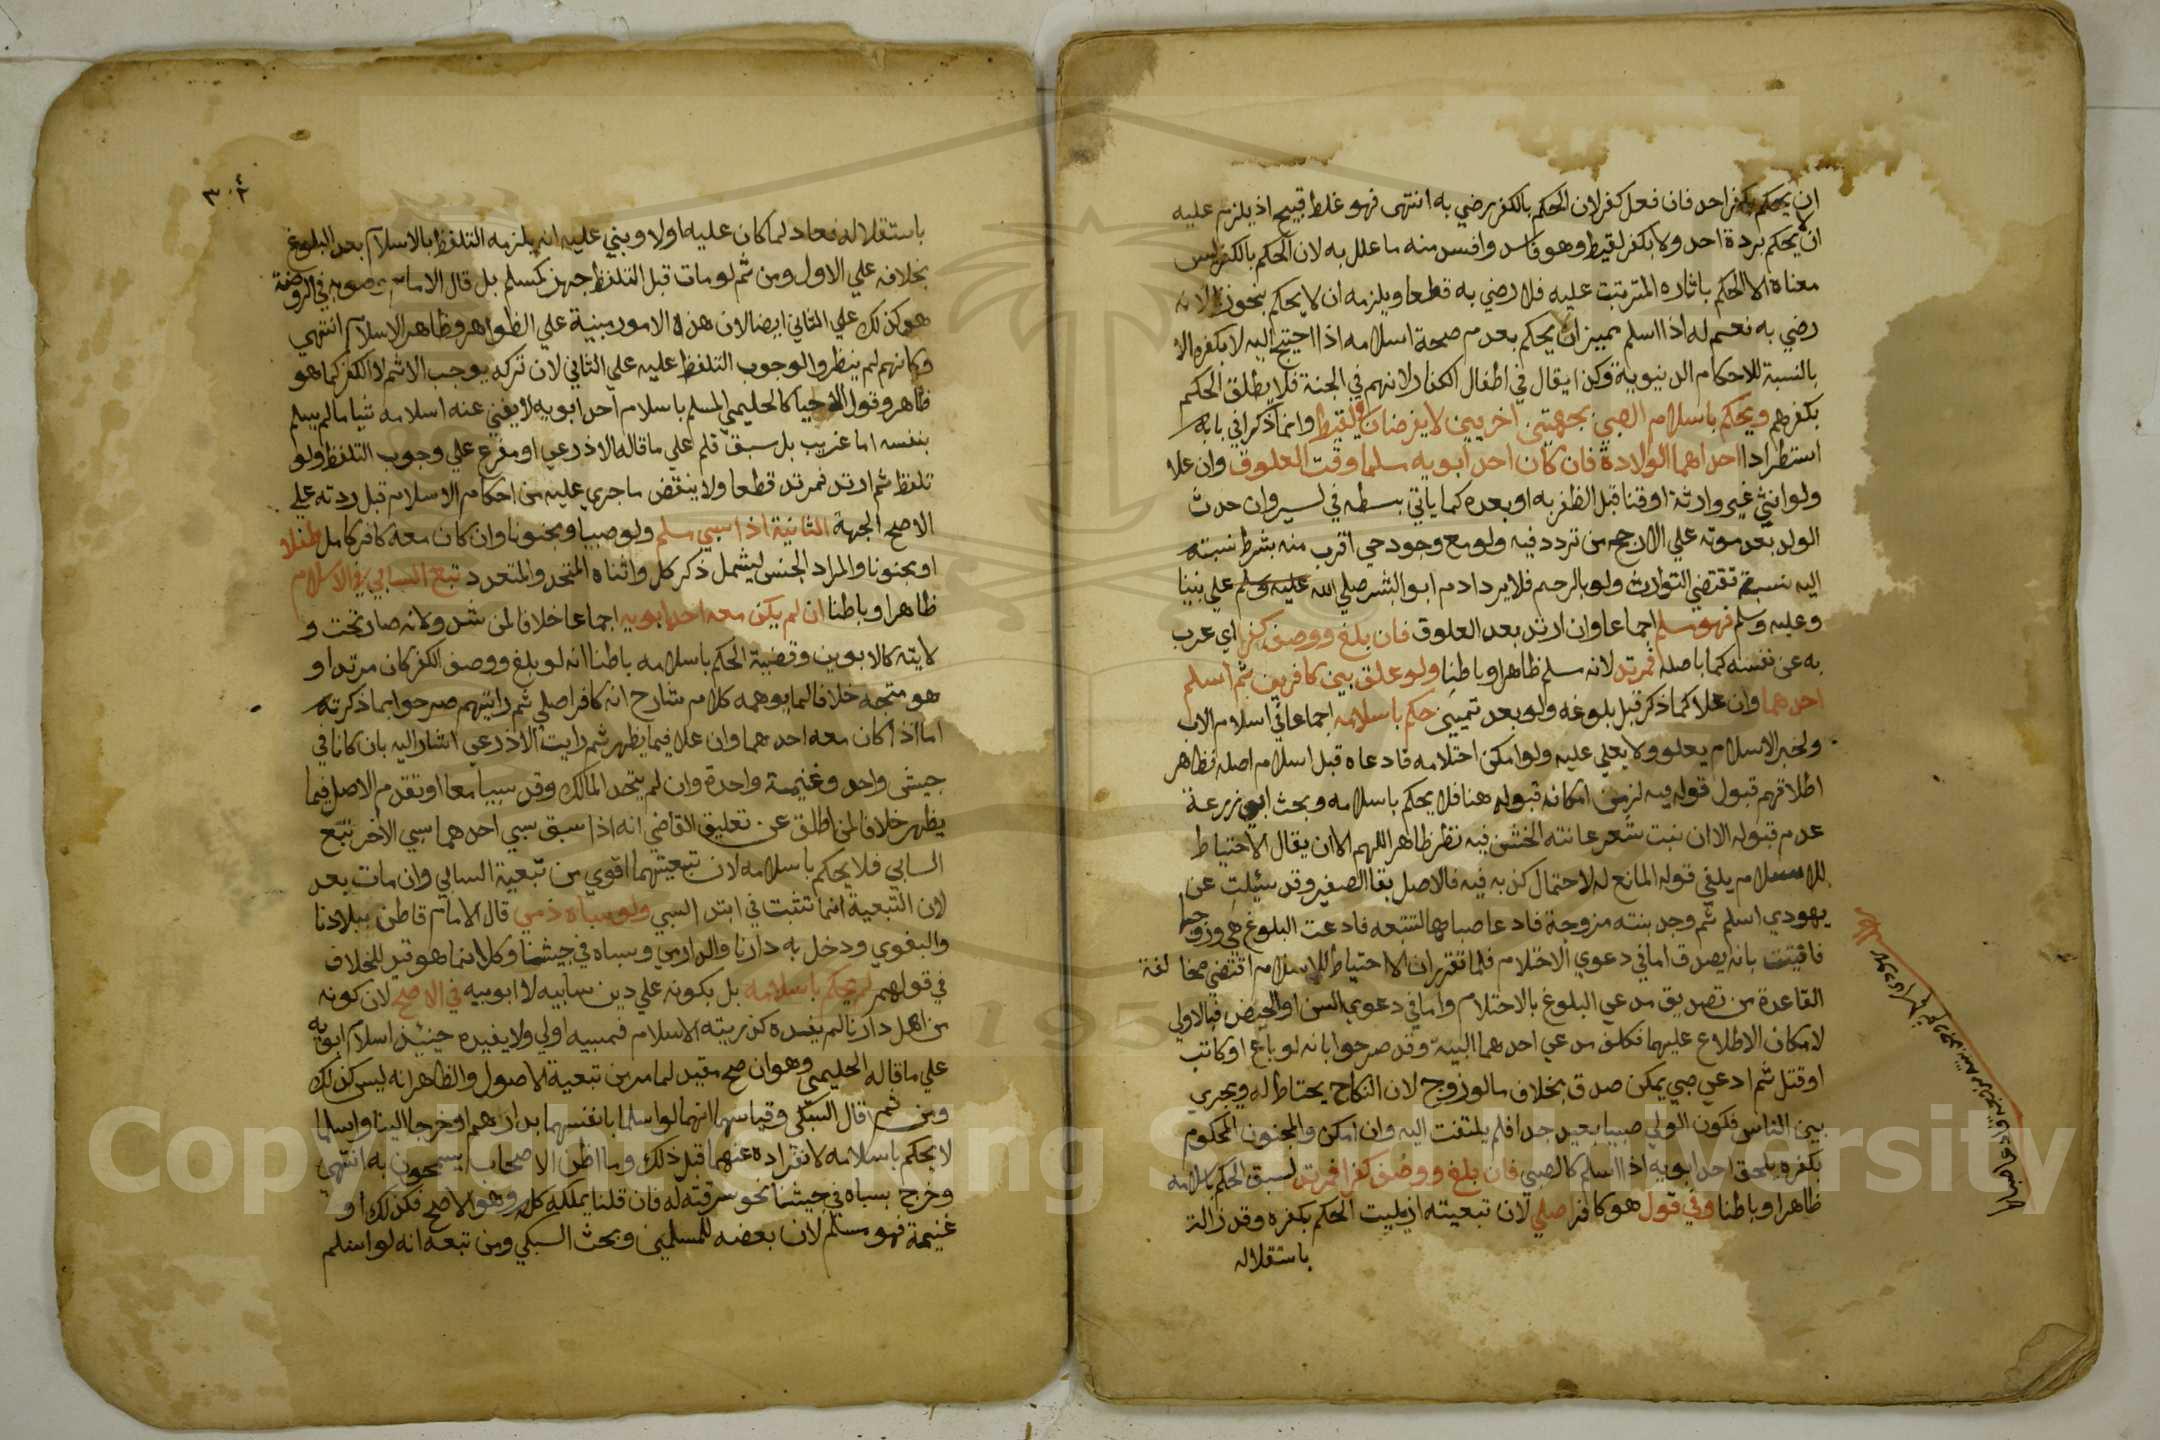 ان يحكم بكفر احد فان فعل كفر لان الحكم بالكفر رضي به انتهى فهو غلط قبيح اذ يلزم عليه
ان لا يحكم بردة احد ولا بكفر لقيط وهو فاسد وافسد منه ما علل به لان الحكم بالكفر ليس
معناه الا الحكم باثاره المترتبت عليه فلا رضي به قطعا ويلزمه ان لا يحكم بنحو زنا لانه
رضي به نعم له اذا اسلم مميز ان يحكم بعدم صحة اسلامه اذا احتيج اليه لا بكفره الا
بالنسبة للاحكام الدنيوية وكذا يقال في اطفال الكفار لانهم في الجنة فلا يطلق الحكم
بكفرهم ويحكم باسلام الصبي بجهتين اخريين لا يفرضان في لقيط وانما ذكرا في بابه
استطرادا احداهما الولادة فان كان احد ابويه مسلما وقت العلوق وان علا
ولو انثى غير وارثة او قنا قبل الظفر به او بعده كما ياتي بسطه في لسير وان حدث
الولد بعد موته علي الارجح من تردد فيه ولو مع وجود حي اقرب منه بشرط نسبته
اليه نسبة تقتضي التوارث ولو بالرحم فلا يرد ادم ابو البشر صلي الله عليه وسلم علي نبينا
وعليه وسلم فهو مسلم اجماعا وان ارتد بعد العلوق فان بلغ ووصف كفرا اي عرب
به عن نفسه كما باصله فمرتد لانه مسلم ظاهرا وباطنا ولو علق بين كافرين ثم اسلم
احدهما وان علا كما ذكر قبل بلوغه ولو بعد تمييز حكم باسلامه اجماعا في اسلام الاب
ولخبر الاسلام يعلو ولا يعلي عليه ولو امكن احتلامه فادعاه قبل اسلام اصله فظاهر
اطلاقهم قبول قوله فيه لزمن امكانه قبوله هنا فلا يحكم باسلامه وبحث ابو زرعة
عدم قبوله الا ان نبت شعر عانته الخشن فيه نظر ظاهر اللهم الا ان يقال الاحتياط
للاسلام يلغي قوله المانع له لاحتمال كذبه فيه فالاصل بقا الصغير وقد سئلت عن
يهودي اسلم ثم وجد بنته مزوجة فادعا صباها لتتبعه فادعت البلوغ هي وزوجها
فافتيت بانه يصدق اما في دعوي الاحتلام فلما تقرر ان الاحتياط للاسلام اقتضي مخالفة
القاعدة من تصديق مدعي البلوغ بالاحتلام واما في دعوي السن او الحيض فبالاولي
لامكان الاطلاع عليهما فكلف مدعي احدهما البينة وقد صرحوا بانه لو باع او كاتب
او قتل ثم ادعي صبي يمكن صدق بخلاف ما لو زوج لان النكاح يحتاط له ويجري
بين الناس فكون الولي صبيا بعيد جدا فلم يلتفت اليه وان امكن والمجنون المحكوم
بكفره يلحق احد ابويه اذا اسلم كالصبي فان بلغ ووصف كفرا فمرتد لسبق الحكم باسلامه
ظاهرا وباطنا وفي قول هو كافر اصلي لان تبعيته ازيليت الحكم بكفره وقد زالت
باستقلاله
٣٠٤
باستقلاله فعاد لما كان عليه اولا ويبني عليه انه يلزمه التلفظ بالاسلام بعد البلوغ
بخلافه علي الاول ومن ثم لو مات قبل التلفظ جهز كمسلم بل قال الامام وصوبه في الروضة
هو كذلك علي الثاني ايضا لان هذه الامور مبنية علي الظواهر وظاهره الاسلام انتهي
وكانهم لم ينظروا لوجوب التلفظ عليه علي الثاني لان تركه يوجب الاثم لا الكفر كما هو
ظاهر وقول كالحليمي المسلم باسلام احد ابويه لا يغني عنه اسلامه شيا ما لم يسلم
بنفسه اما غريب بل سبق قلم علي ما قاله الاذرعي او مفرع علي وجوب التلفظ ولو
تلفظ ثم ارتد فمرتد قطعا ولا ينقض ما جري عليه من احكام الاسلام قبل ردته علي
الاصح الجهة الثانية اذا سبي مسلم ولو صبيا ومجنونا وان كان معه كافر كامل طفلا
او مجنونا والمراد الجنس ليشمل ذكر كل وانثاه المتحد والمتعدد تبع السابي في الاسلام
ظاهرا وباطنا ان لم يكن معه احد ابويه اجماعا خلافا لمن شذ ولانه صار تحت و
لايته كالابوين وقضية الحكم باسلامه باطنا انه لو بلغ ووصف الكفر كان مرتدا و
هو متجه خلافا لما يوهمه كلام شارح انه كافر اصلي ثم رايتهم صرحوا بما ذكرته
اما اذا كان معه احدهما وان علا فيما يظهر ثم رايت الاذرعي اشار اليه بان كانا في
جيش واحد وغنيمة واحدة وان لم يتحد المالك وقد سبيا معا او تقدم الاصل فيما
يظهر خلافا لمن اطلق عن تعليق القاضي انه اذا سبق سبي احدهما سبي الاخر تتبع
السابي فلا يحكم باسلامه لان تبعيتهما اقوي من تبعية السابي وان مات بعد
لان التبعية انما تثبت في ابتد السبي ولو سباه ذمي قال الامام قاطن ببلادنا
والبغوي ودخل به دارنا والدارمي وسباه في جيشنا وكل انما هو قيد للخلاف
في قولهم لم يحكم باسلامه بل بكونه علي دين سابيه لا ابويه في الاصح لان كونه
من اهل دارنا لم يفده كذريته الاسلام فمسبيه اولي ولا يفيده حينئذ اسلام ابويه
علي ما قاله الحليمي وهو ان صح مقيد لما مر من تبعية الاصول والظاهر انه ليس كذلك
ومن ثم قال السبكي وقياسهما انهما لو اسلما بانفسهما بدارهم او خرجا الينا واسلما
لا يحكم باسلامه لانفراده عنهما قبل ذلك وما اظن الاصحاب يسمحون به انتهي
وخرج بسباه في جيشنا نحو سرقته له فان قلنا يملكه كله وهو الاصح فكذلك او
غنيمة فهو مسلم لان بعضه للمسلمين وبحث السبكي ومن تبعه انه لو اسلم
Copyright © King Saud University
195